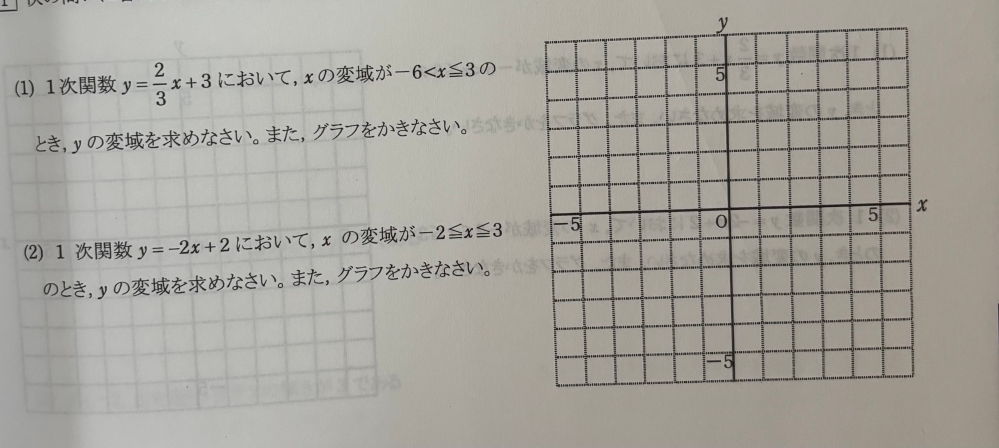 (1) 1次関数 y=2/3x+3 において, xの変域が−6<x≦3の
とき, yの変域を求めなさい。また, グラフをかきなさい。
(2) 1 次関数 y=−2x+2 において, x の変域が−2≦x≦3
のとき, yの変域を求めなさい。また, グラフをかきなさい。
y
5
−5
O
5
x
−5